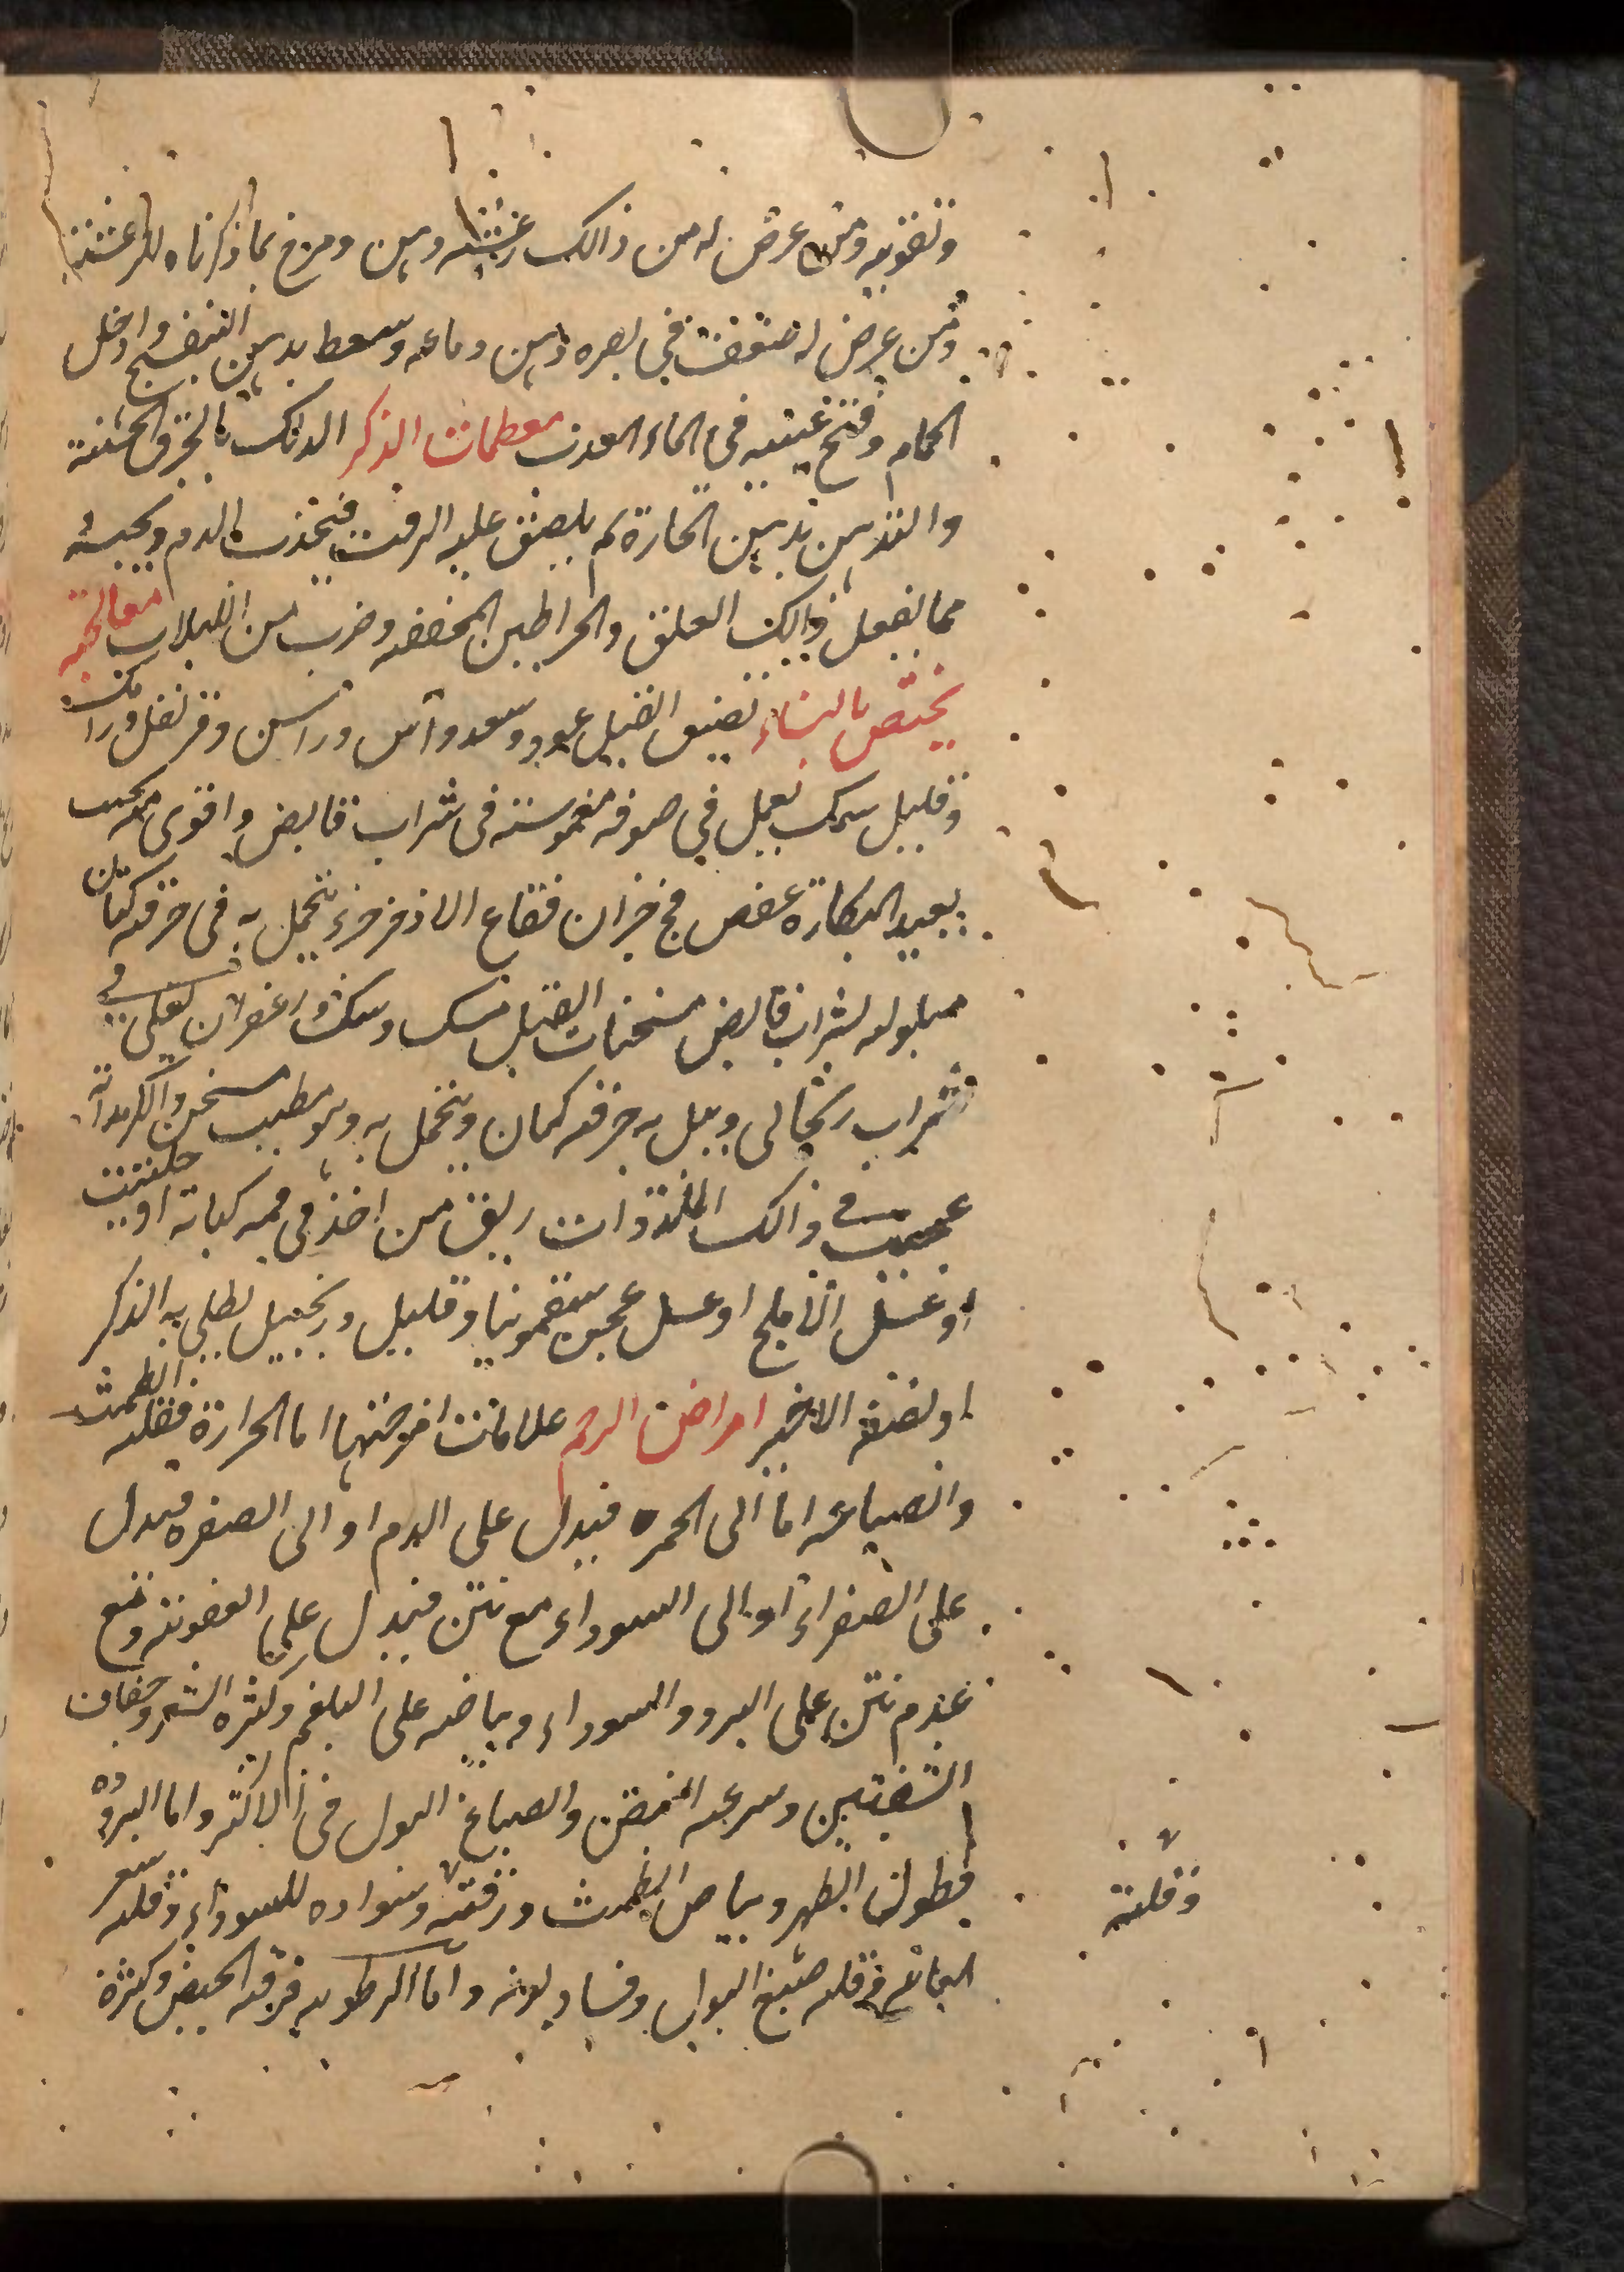 وتقويه ومن عرض له من ذالك رعشه دهن ومرخ بما ذكرناه للرعشة
ومن عرض له ضعف في بصره دهن دماغه وسعط بدهن البنفسج وادخل
الحمام وفتح عينيه في الماء العذب معظمات الذكر الدلك بالخرق الخشنة
والتدهين بدهن الحارة ثم يلصق عليه الزفت فيجذب الدم ويحبسه
مما يفعل ذالك العلق والخراطين المجففه وضرب من اللبلاب معالجه
يختص بالنساء تضيق القبل عود وسعد وآس وراسن وقرنفل ورامك
وقليل مسك يعمل في صوفه مغموسة في شراب قابض واقوى منه عجيب
يعيد البكارة عفص فج جزان فقاع الاذخر جزء يتحمل به في خرقه كتان
مبلوله بشراب قابض مسخنات القبل مسك وسك وزعفران يغلى في
شراب ريحانى ويبل به خرقه كتان ويتحمل به وهو مطيب مسخن والكرمدانة
عجيب في ذالك الملذذات ريق من اخذ في فمه كبابة او حلتيت
او عسل الاملج او عسل عجن سقمونيا وقليل زنجبيل يطلى به الذكر
او نصفه الاخير امراض الرحم علامات امزجتها اما الحرارة فقله الطمث
وانصباغه اما الى الحمره فيدل على الدم او الى الصفره فيدل
على الصفراء او الى السوداء مع نتن فيدل على العفونه ومع
عدم نتن على البرد والسوداء وبياضه على البلغم وكثره الشعر وجفاف
الشفتين وسرعه النبض وانصباغ البول في الاكثر واما البروده
فطول الطهر وبياض الطمث ورقته وسواده للسوداء وقله شعر
وقلته
العانه وقله صبغ البول وفساد لونه واما الرطوبه فرقه الحيض وكثرة